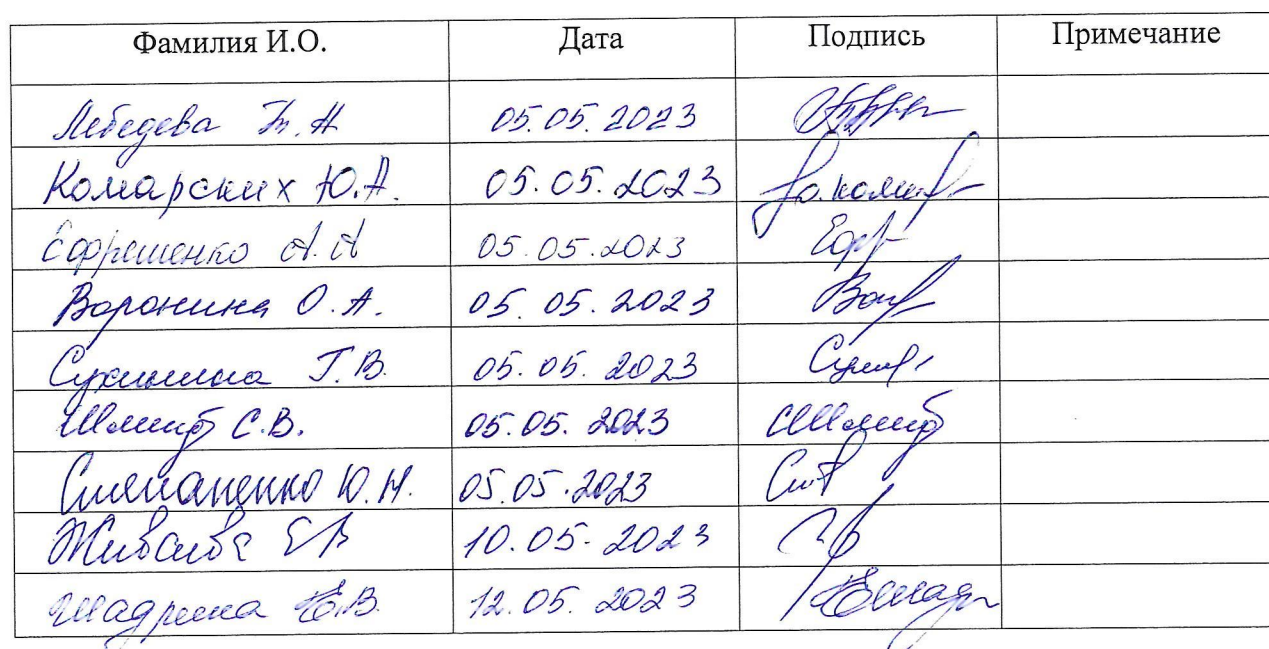 Фамилия И.О. Дата Подпись Примечание
Лебедева Т.Н 05.05.2023
Комарских Ю.А. 05.05.2023
Ефременко А.А 05.05.2023
Воронина О.А. 05.05.2023
Сухинина Г.В. 05.05.2023
Шмидт С.В. 05.05.2023 Шмидт
Степаненко Ю.Н. 05.05.2023
Е В 10.05.2023
Шадрина Е.В. 12.05.2023